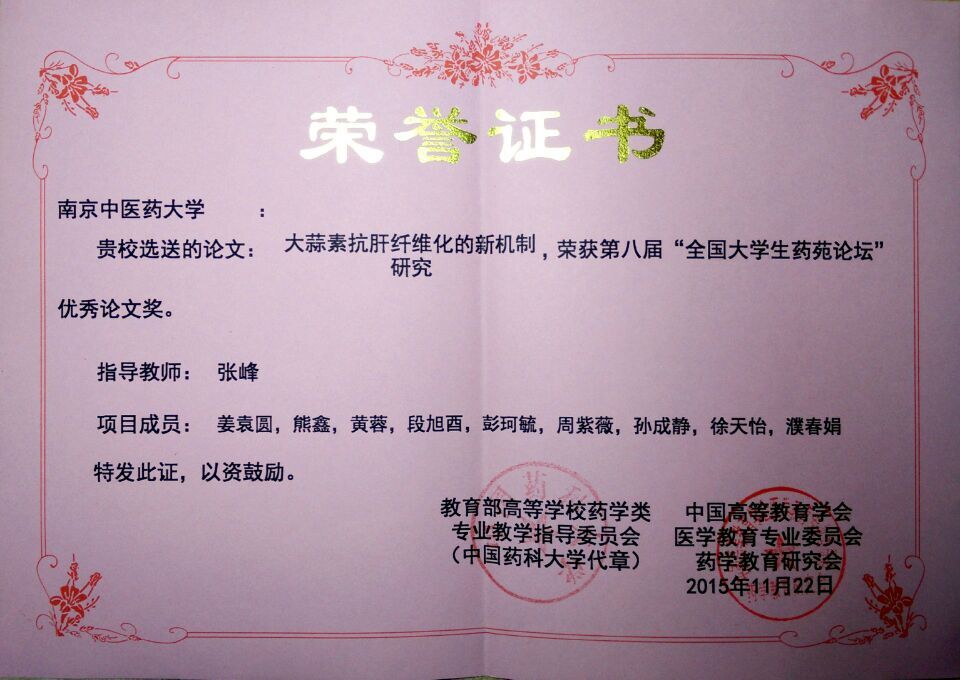 荣誉证书
南京中医药大学 ：
贵校选送的论文： 大蒜素抗肝纤维化的新机制研究，荣获第八届“全国大学生药苑论坛”
优秀论文奖。
指导教师： 张峰
项目成员： 姜袁圆，熊鑫，黄蓉，段旭酉，彭珂毓，周紫薇，孙成静，徐天怡，濮春娟
特发此证，以资鼓励。
教育部高等学校药学类
专业教学指导委员会
（中国药科大学代章）
中国高等教育学会
医学教育专业委员会
药学教育研究会
2015年11月22日